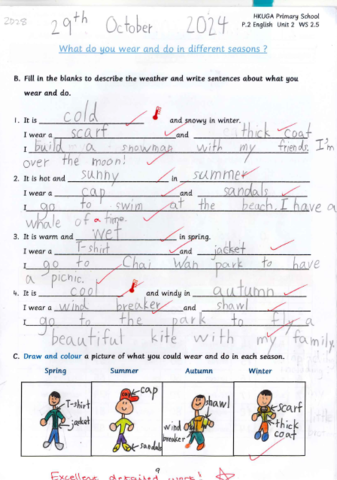 2025
29th October 2024
HKUGA Primary School
P.2 English Unit 2 WS 2.5
What do you wear and do in different seasons ?
B. Fill in the blanks to describe the weather and write sentences about what you
wear and do.
1. It is cold and snowy in winter.
I wear a scarf and thick coat
I build a snowman with my friends. I'm
over the moon!
2. It is hot and sunny in summer
I wear a cap and sandals
I go to swim at the beach. I have a
whale of a time.
3. It is warm and wet in spring.
I wear a T-shirt and jacket
I go to Chai Wan park to have
a picnic.
4. It is cool and windy in autumn
I wear a wind breaker and shawl
I go to the park to fly a
beautiful kite with my family.
C. Draw and colour a picture of what you could wear and do in each season.
Spring Summer Autumn Winter
T-shirt
jacket
cap
sandals
shawl
wind
breaker
scarf
thick
coat
9
Excellent detailed work!